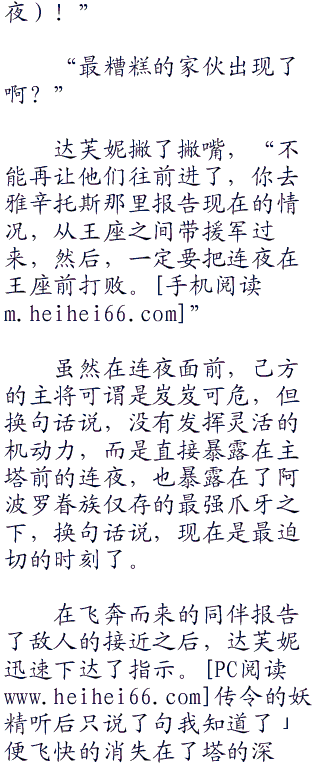 夜）！”
“最糟糕的家伙出现了
啊？”
达芙妮撇了撇嘴，“不
能再让他们往前进了，你去
雅辛托斯那里报告现在的情
况，从王座之间带援军过
来，然后，一定要把连夜在
王座前打败。[手机阅读
m.heihei66.com]”
虽然在连夜面前，己方
的主将可谓是岌岌可危，但
换句话说，没有发挥灵活的
机动力，而是直接暴露在主
塔前的连夜，也暴露在了阿
波罗眷族仅存的最强爪牙之
下，换句话说，现在是最迫
切的时刻了。
在飞奔而来的同伴报告
了敌人的接近之后，达芙妮
迅速下达了指示。[PC阅读
www.heihei66.com]传令的妖
精听后只说了句我知道了」
便飞快的消失在了塔的深